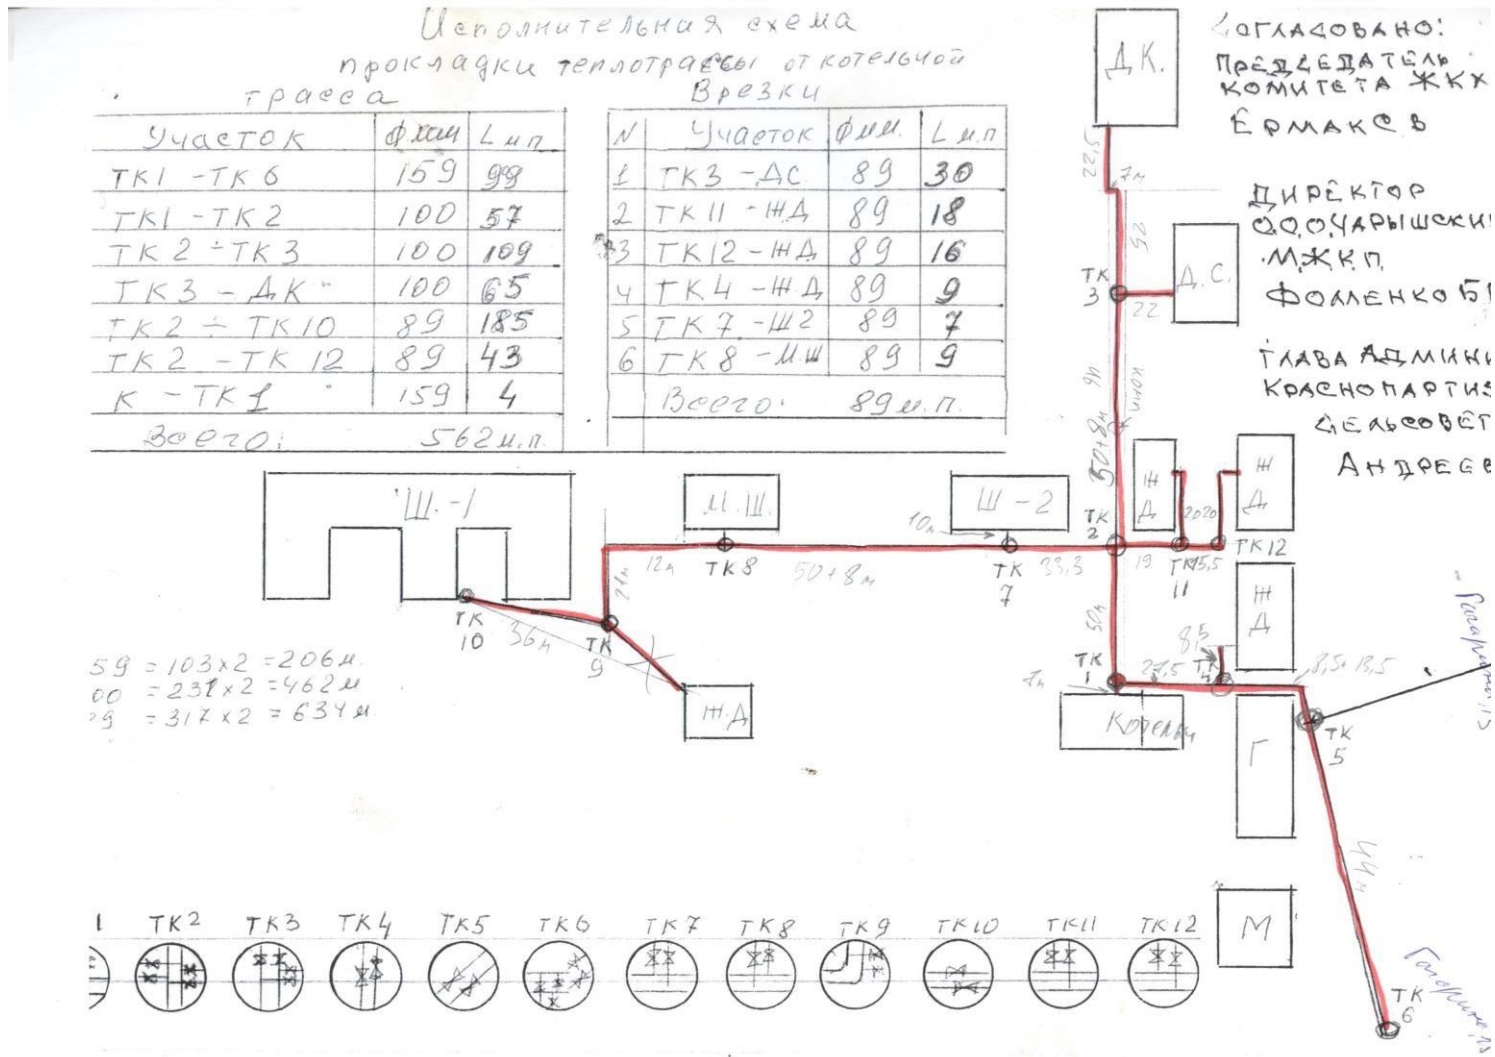 Исполнительная схема
прокладки теплотрассы от котельной
трасса
Участок Ф мм L м.п
ТК1 - ТК6 159 99
ТК1 - ТК2 100 57
ТК2 ÷ ТК3 100 109
ТК3 - ДК 100 65
ТК2 ÷ ТК10 89 185
ТК2 - ТК12 89 43
К - ТК1 159 4
Всего: 562 м.п.
Врезки
N Участок Ф мм. L м.п
1 ТК3 - ДС 89 30
2 ТК11 - ЖД 89 18
3 ТК12 - ЖД 89 16
4 ТК4 - Ж.Д 89 9
5 ТК7 - Ш2 89 7
6 ТК8 - МШ 89 9
Всего: 89 м.п.
СОГЛАСОВАНО:
ПРЕДСЕДАТЕЛЬ
КОМИТЕТА ЖКХ
ЕРМАКОВ
ДИРЕКТОР
ООО ЧАРЫШСКИ
МЖКП
ФОМЕНКО
ГЛАВА АДМИНИ
КРАСНОПАРТИЗ
СЕЛЬСОВЕТ
АНДРЕЕВ
Д.К.
22,5
7м
25
ТК
3
Д.С.
22
46
50+8м
Ш.-1
М.Ш.
Ш-2
10м
ТК
2
Ж
Д
2020
Ж
Д
12м
ТК8
50+8м
ТК
7
33,3
19
ТК
11
15,5
ТК12
21м
ТК
10
36м
ТК
9
50м
8,5
Ж
Д
ТК
1
27,5
ТК
4
8,5+13,5
59 = 103х2 = 206м.
00 = 231х2 = 462м
= 317х2 = 634м.
Ж.Д
Г
ТК
5
Гагарина, 15
44м
М
ТК
6
1 ТК2 ТК3 ТК4 ТК5 ТК6 ТК7 ТК8 ТК9 ТК10 ТК11 ТК12